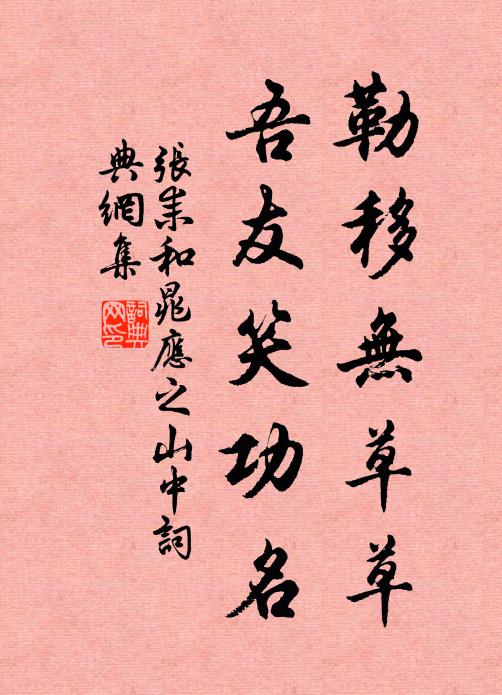 勒移無草草
吾友笑功名
張耒和晁應之山中詞
典網集
詞典
网印